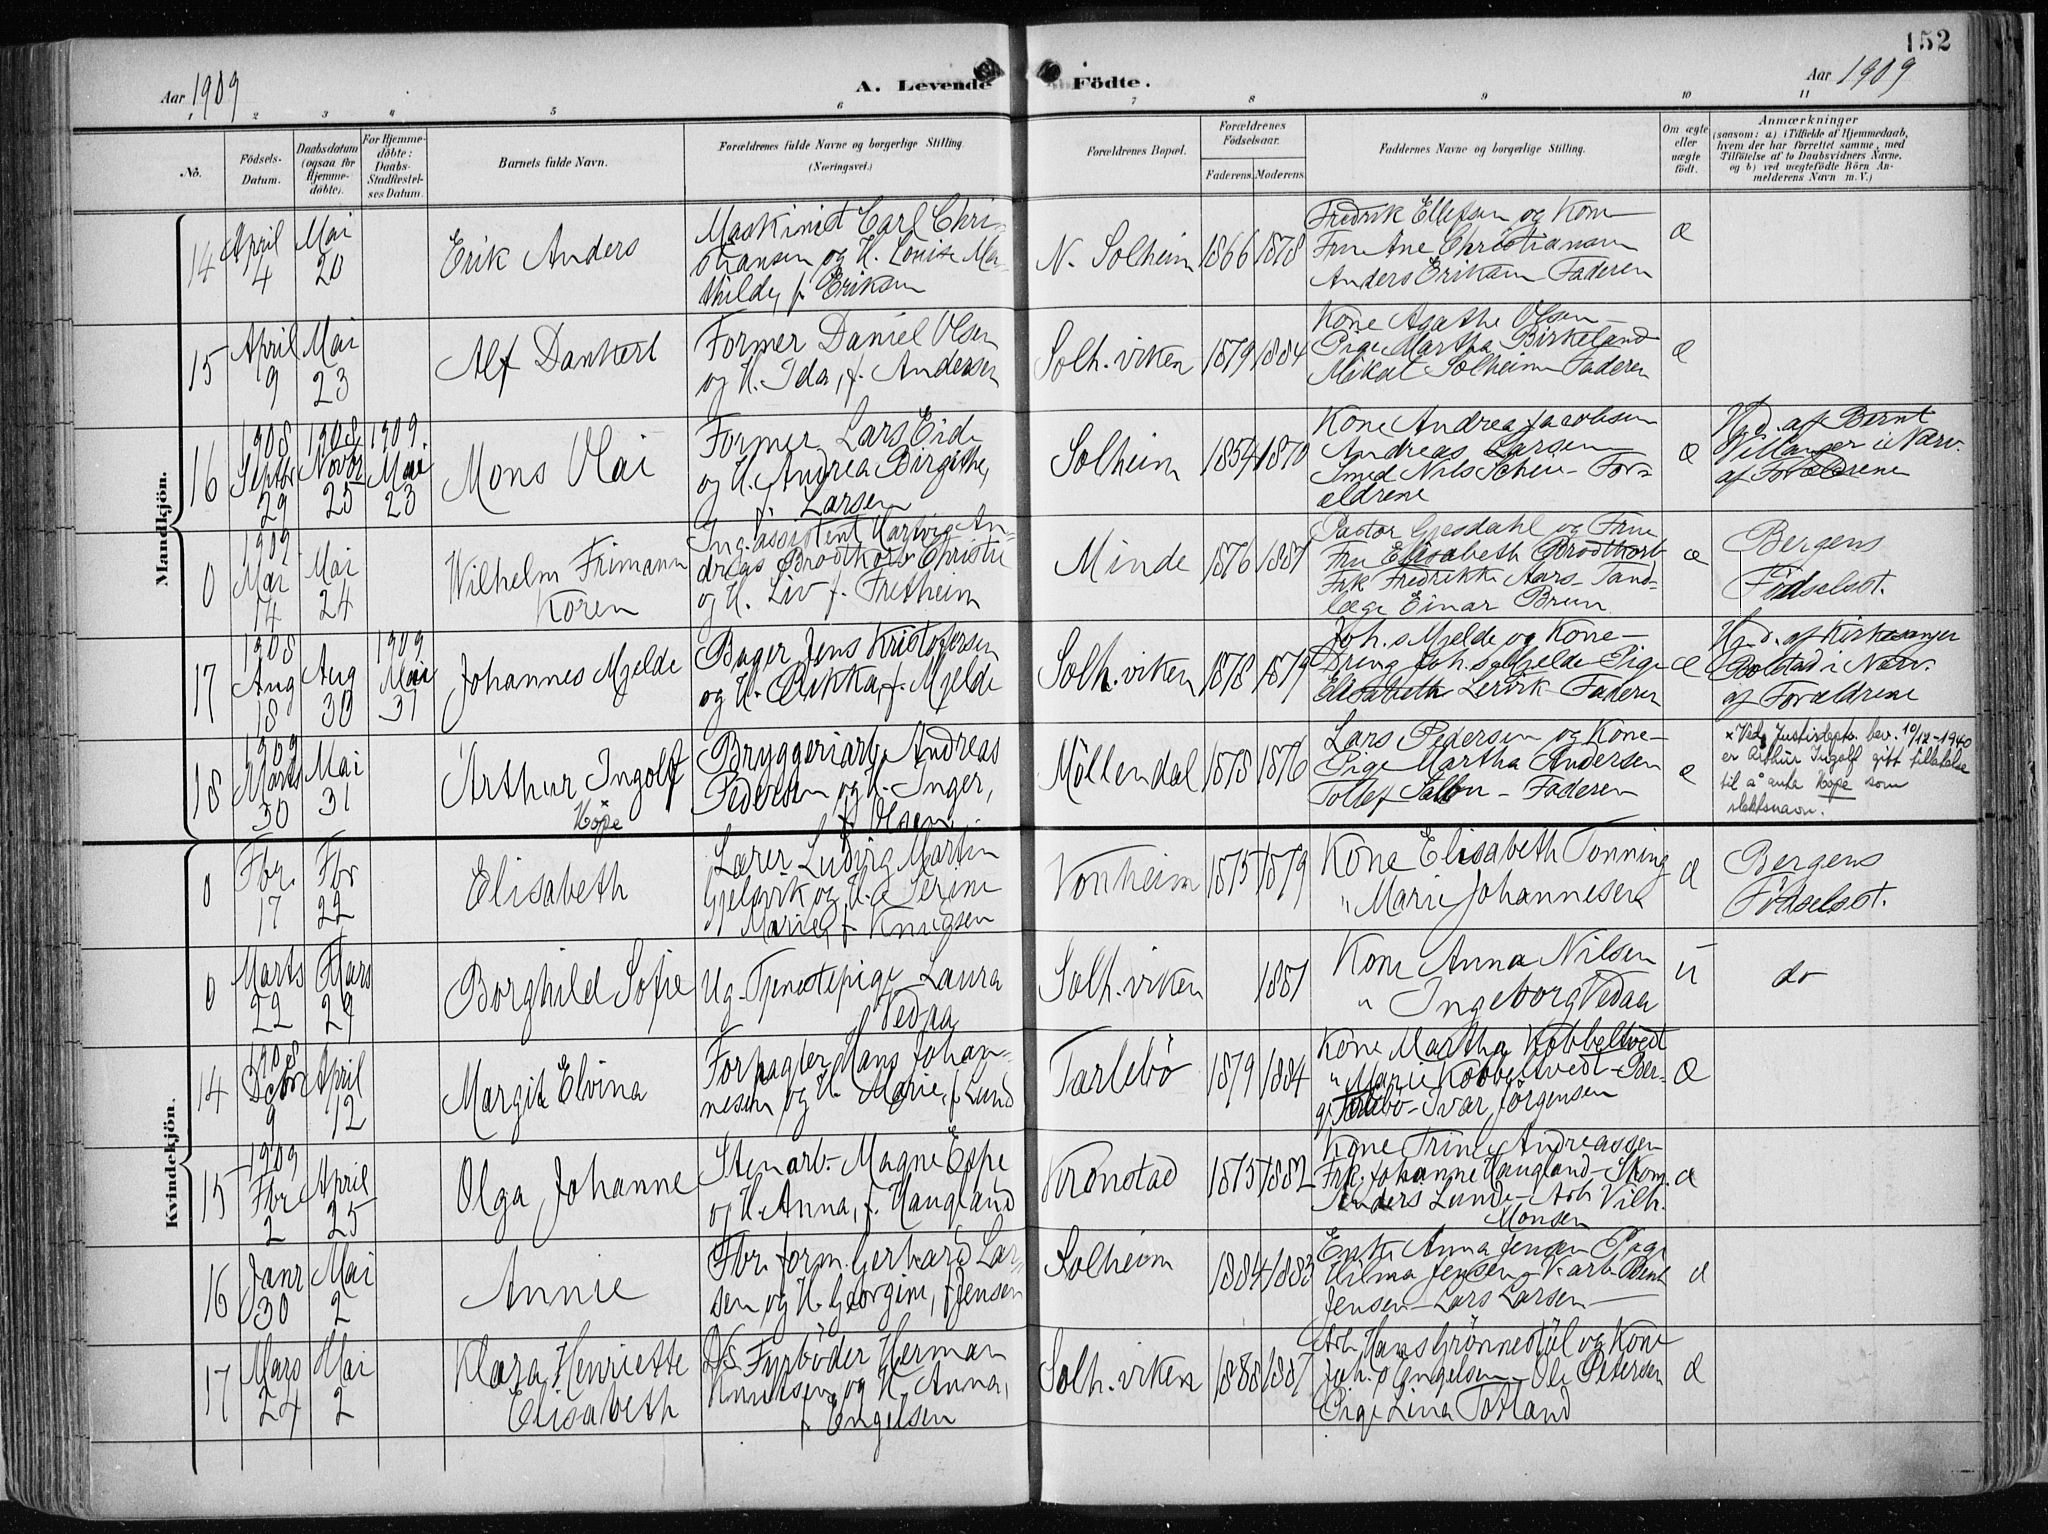 152
Aar 1909
A. Levende Födte.
Aar 1909
1 2 3 4 5 6 7 8 9 10 11
No.
Födsels-Datum.
Daabsdatum (ogsaa for Hjemmedöbte).
For Hjemmedöbte: Daabs-Stadfæstelses Datum.
Barnets fulde Navn.
Forældrenes fulde Navne og borgerlige Stilling.
(Næringsvei.)
Forældrenes Bopæl.
Forældrenes Födselsaar.
Faderens. Moderens.
Faddernes Navne og borgerlige Stilling.
Om ægte eller uægte födt.
Anmærkninger
(saasom: a) i Tilfælde af Hjemmedaab,
hvem der har forrettet samme, med
Tilföielse af to Daabsvidners Navne,
og b) ved uægtefödte Börn Anmelderens Navn m. V.)
Mandkjön.
14
April 4
Mai 20
Erik Anders
Maskinist Carl Chri-
stiansen og H. Louise Ma-
thilde, f. Eriksen
N. Solheim
1866
1878
Fredrik Ellefsen og Kone
Fru Ane Christiansen
Anders Eriksen Faderen
æ
15
April 9
Mai 23
Alf Dankert
Former Daniel Olsen
og H. Ida, f. Andersen
Solh.viken
1879
1884
Kone Agathe Olsen –
Pige Martha Birkeland
Mikal Solheim Faderen
æ
16
1908 Septbr 29
1908 Novbr 25
1909 Mai 23
Mons Olai
Former Lars Eide
og H. Andrea Birgithe,
f. Larsen
Solheim
1854
1870
Kone Andrea Jacobsen
Andreas Larsen
Smed Nils Scheie – For-
ældrene
æ
Hjd. af Bernt
Willanger i Nærv.
af Forældrene
0
1909 Mai 14
Mai 24
Wilhelm Frimann
Koren
Ing.assistent Hartvig An-
dreas Brodtkorb Christie
og H. Liv f. Fretheim
Minde
1876
1881
Pastor Gjesdahl og Frue
Fru Elisabeth Brodtkorb
Frk Fredrikke Aars – Tand-
læge Einar Brun
æ
Bergens
Födselsst.
17
1908 Aug 18
Aug 30
1909 Mai 31
Johannes Mjelde
Bager Jens Kristofersen
og H. Rikka, f. Mjelde
Solh.viken
1878
1879
Joh. Mjelde og Kone –
Dreng Joh. Mjelde Pige
Elisabeth Lervik – Faderen
æ
Hjd. af Kirkesanger
Rolstad i Nærv.
af Forældrene
18
1909 Marts 30
Mai 31
Arthur Ingolf
Köpe
Bryggeriarb. Andreas
Pedersen og H. Inger,
f. Olsen
Möllendal
1878
1876
Lars Pedersen og Kone –
Pige Martha Andersen
Tollef – Faderen
æ
x Ved Justisdepts. bev. 10/12-1940
er Arthur Ingolf gitt tillatelse
til å anta Köpe som
slektsnavn.
Kvindekjön.
0
Fbr. 17
Fbr 22
Elisabeth
Lærer Ludvig Martin
Gjelsvik og H. Serine
Marie f. Knudsen
Vonheim
1875
1879
Kone Elisabeth Tonning
" Marie Johannesen
æ
Bergens
Födselsst.
0
Marts 22
Mars 29
Borghild Sofie
Ug. Tjenestepige Laura
Vedaa
Solh.viken
1881
Kone Anna Nilsen
" Ingeborg Vedaa
u
do
14
1908 Decbr 9
April 12
Margit Elvina
Forpagter Hans Johan-
nesen og H. Marie, f. Lund
Tarlebö
1879
1884
Kone Martha Kobbeltvedt
" Marie Kobbeltvedt – Ber-
ge Tarlebö – Ivar Jörgensen
æ
15
1909 Fbr 2
April 25
Olga Johanne
Stenarb. Magne Espe
og H. Anna, f. Haugland
Kronstad
1875
1882
Kone Trine Andreassen
Frk. Johanne Haugland – Skom.
Anders Lunde – Arb Vilh.
Monsen
æ
16
Janr 30
Mai 2
Annie
Fbr. form. Gerhard Lar-
sen og H. Georgine, f. Jensen
Solheim
1884
1883
Enke Anna Jensen Pige
Hilma Jensen – V.arb. Bernt
Jensen – Lars Larsen –
æ
17
Mars 24
Mai 2
Klara Henriette
Elisabeth
Ds. Fyrböder Herman
Knudsen og H. Anna,
f. Engelsen
Solh.viken
1888
1887
Arb Hans Grönnestöl og Kone
Joh.s Engelsen – Ole Petersen
Pige Lina Totland
æ